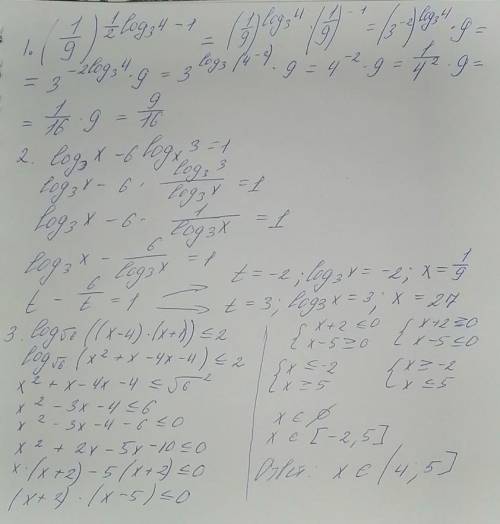 1. (1/9)^(1/2 log₃4 − 1) = (1/9)^(log₃4) · (1/9)^(−1) = (3^(−2))^(log₃4) · 9 =
= 3^(−2log₃4) · 9 = 3^(log₃(4^(−2))) · 9 = 4^(−2) · 9 = 1/4² · 9 =
= 1/16 · 9 = 9/16
2. log₃x − 6 logₓ3 = 1
log₃x − 6 · log₃3/log₃x = 1
log₃x − 6 · 1/log₃x = 1
log₃x − 6/log₃x = 1
t − 6/t = 1
t = −2; log₃x = −2; x = 1/9
t = 3; log₃x = 3; x = 27
3. log√6((x−4)·(x+1)) ≤ 2
log√6(x² + x − 4x − 4) ≤ 2
x² + x − 4x − 4 ≤ √6²
x² − 3x − 4 ≤ 6
x² − 3x − 4 − 6 ≤ 0
x² + 2x − 5x − 10 ≤ 0
x·(x+2) − 5(x+2) ≤ 0
(x+2)·(x−5) ≤ 0
{x+2 ≤ 0 {x+2 ≥ 0
x−5 ≥ 0 x−5 ≤ 0
{x ≤ −2 {x ≥ −2
x ≥ 5 x ≤ 5
x ∈ ∅
x ∈ [−2, 5]
Ответ: x ∈ (4; 5]